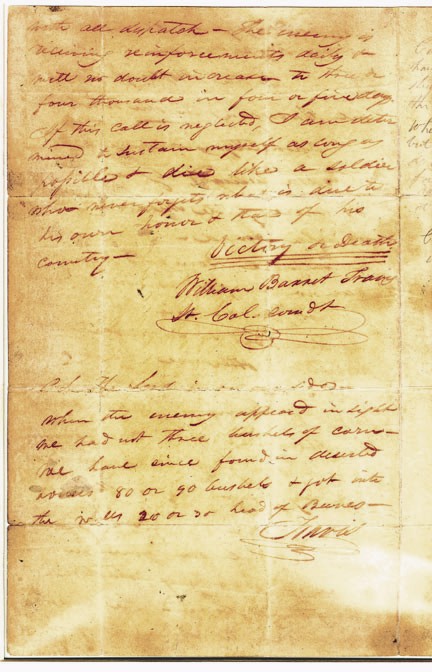 with all dispatch — The enemy is
receiving reinforcements daily &
will no doubt increase to three or
four thousand in four or five days.
If this call is neglected, I am deter
mined to sustain myself as long as
possible & die like a soldier
who never forgets what is due to
his own honor & that of his
country —
Victory or Death
William Barret Travis
Lt. Col. comdt
P.S. The Lord is on our side —
when the enemy appeared in sight
we had not three bushels of corn —
we have since found in deserted
houses 80 or 90 bushels & got into
the walls 20 or 30 head of Beeves —
Travis